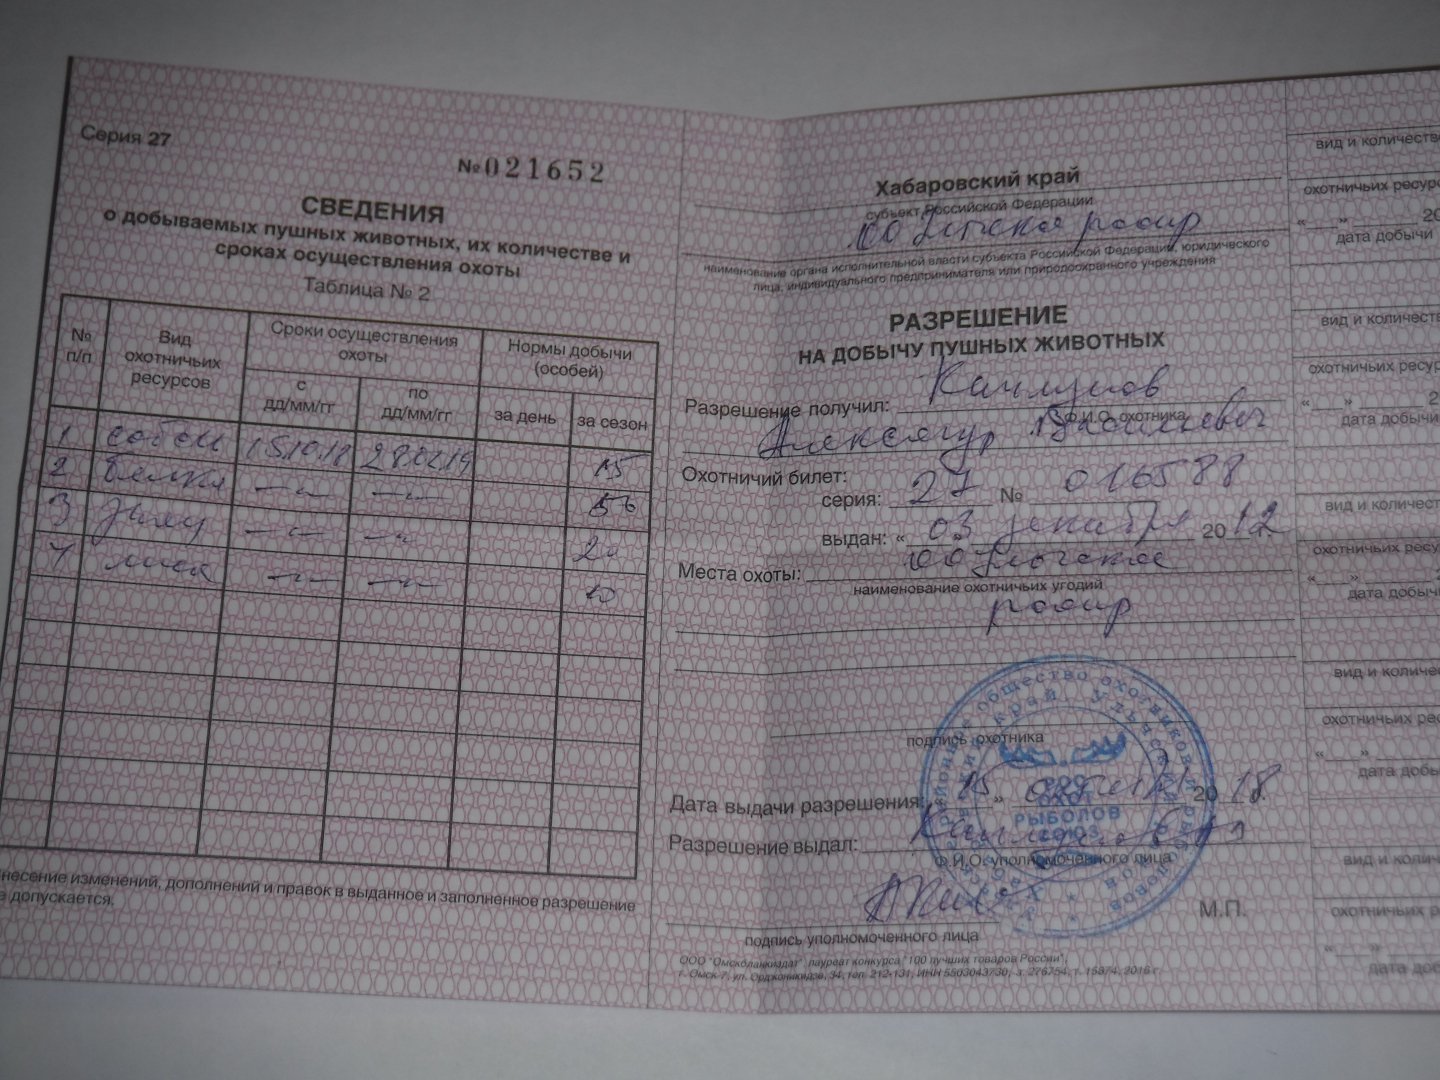 Серия 27
№ 021652
СВЕДЕНИЯ
о добываемых пушных животных, их количестве и
сроках осуществления охоты
Таблица № 2
№ п/п
Вид охотничьих ресурсов
Сроки осуществления охоты
Нормы добычи (особей)
с дд/мм/гг
по дд/мм/гг
за день
за сезон
1 соболь 15.10.18 28.02.19 15
2 белка —"— —"— 50
3 —"— —"— 20
4 —"— —"— 10
несение изменений, дополнений и правок в выданное и заполненное разрешение
е допускается.
Хабаровский край
субъект Российской Федерации
наименование органа исполнительной власти субъекта Российской Федерации, юридического
лица, индивидуального предпринимателя или природоохранного учреждения
РАЗРЕШЕНИЕ
НА ДОБЫЧУ ПУШНЫХ ЖИВОТНЫХ
Разрешение получил:
Ф.И.О. охотника
Александр
Охотничий билет:
серия: 27 № 016588
выдан: « 03 декабря 2012
Места охоты:
наименование охотничьих угодий
подпись охотника
Дата выдачи разрешения: « 15 » октября 2018.
Разрешение выдал:
Ф.И.О. уполномоченного лица
подпись уполномоченного лица
М.П.
РЫБОЛОВ
СОЮЗ
ООО "Омскбланкиздат", лауреат конкурса "100 лучших товаров России",
г. Омск-7, ул. Орджоникидзе, 34, тел. 212-131, ИНН 5503043730, з. 276754, т. 15874, 2016 г.
вид и количеств
охотничьих ресур
« » 20
дата добычи
вид и количеств
охотничьих ресур
« » 2
дата добычи
вид и количест
охотничьих ресу
« » 2
дата добычи
вид и количес
охотничьих рес
« »
дата добы
вид и колич
охотничьих р
« »
дата доб